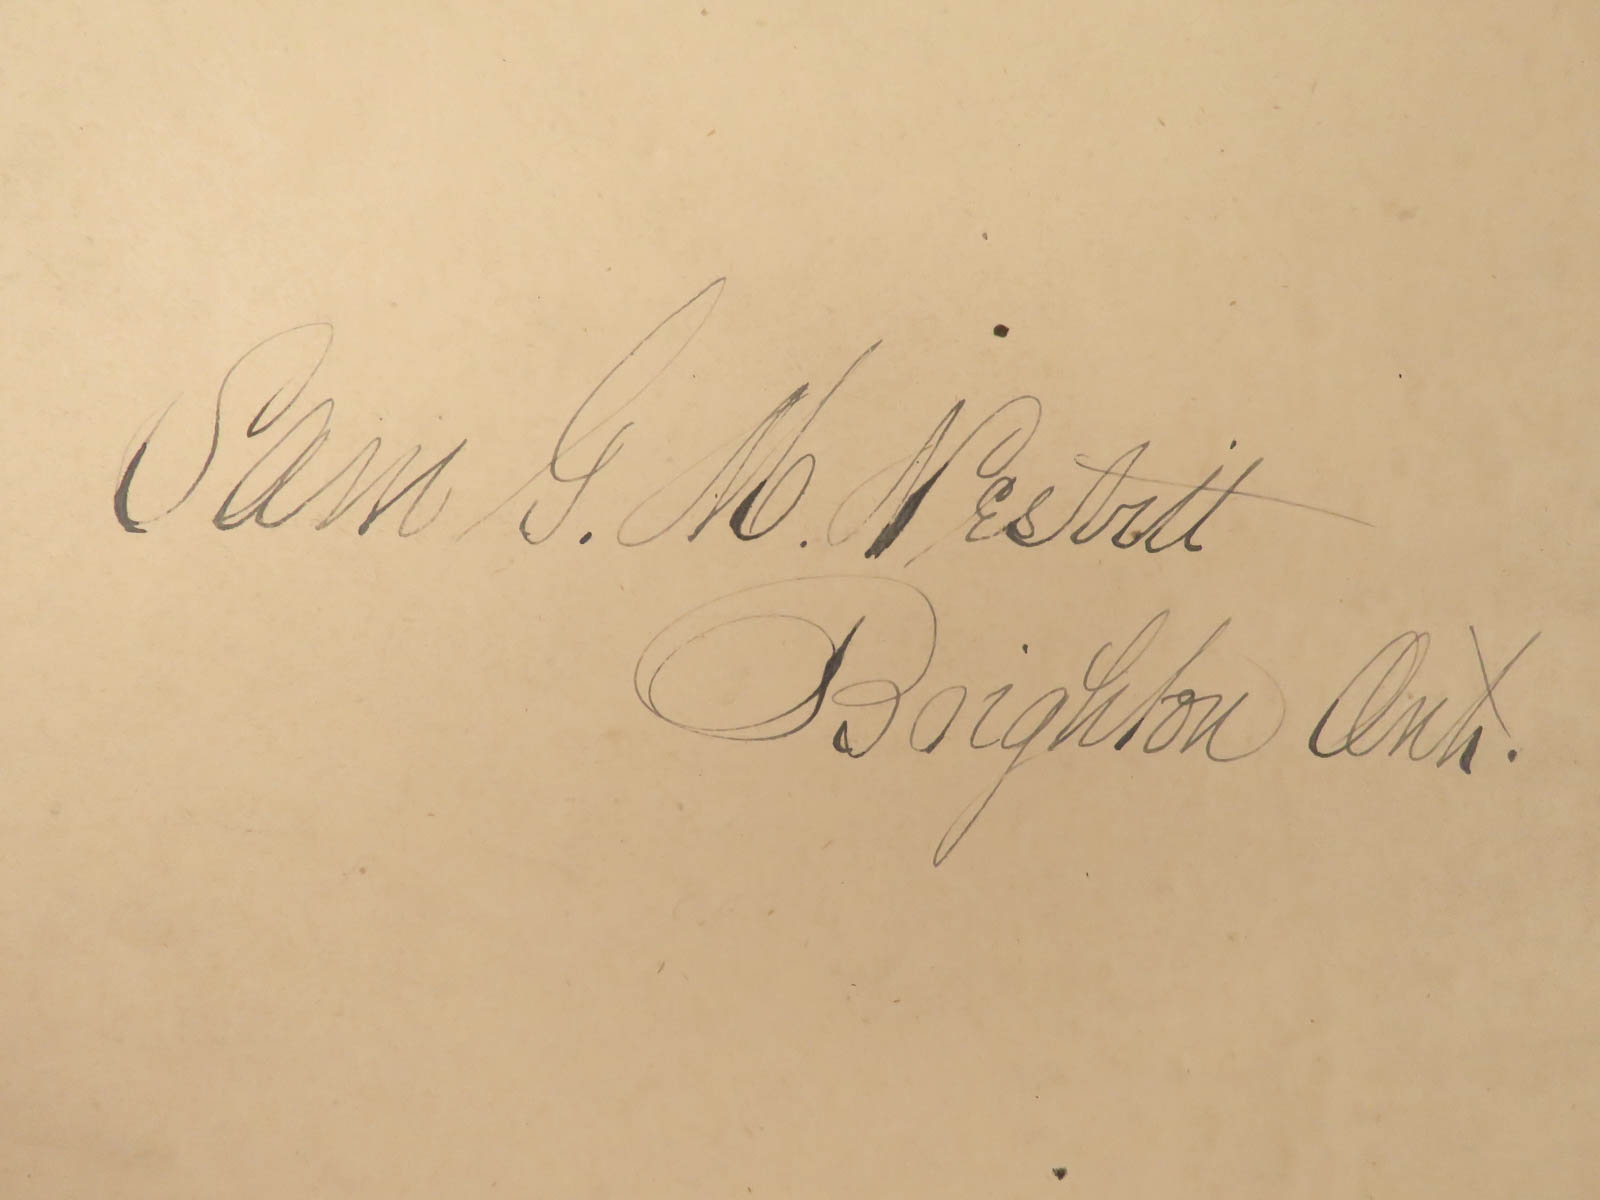 Sam G. M. Nesbitt
Brighton Ont.